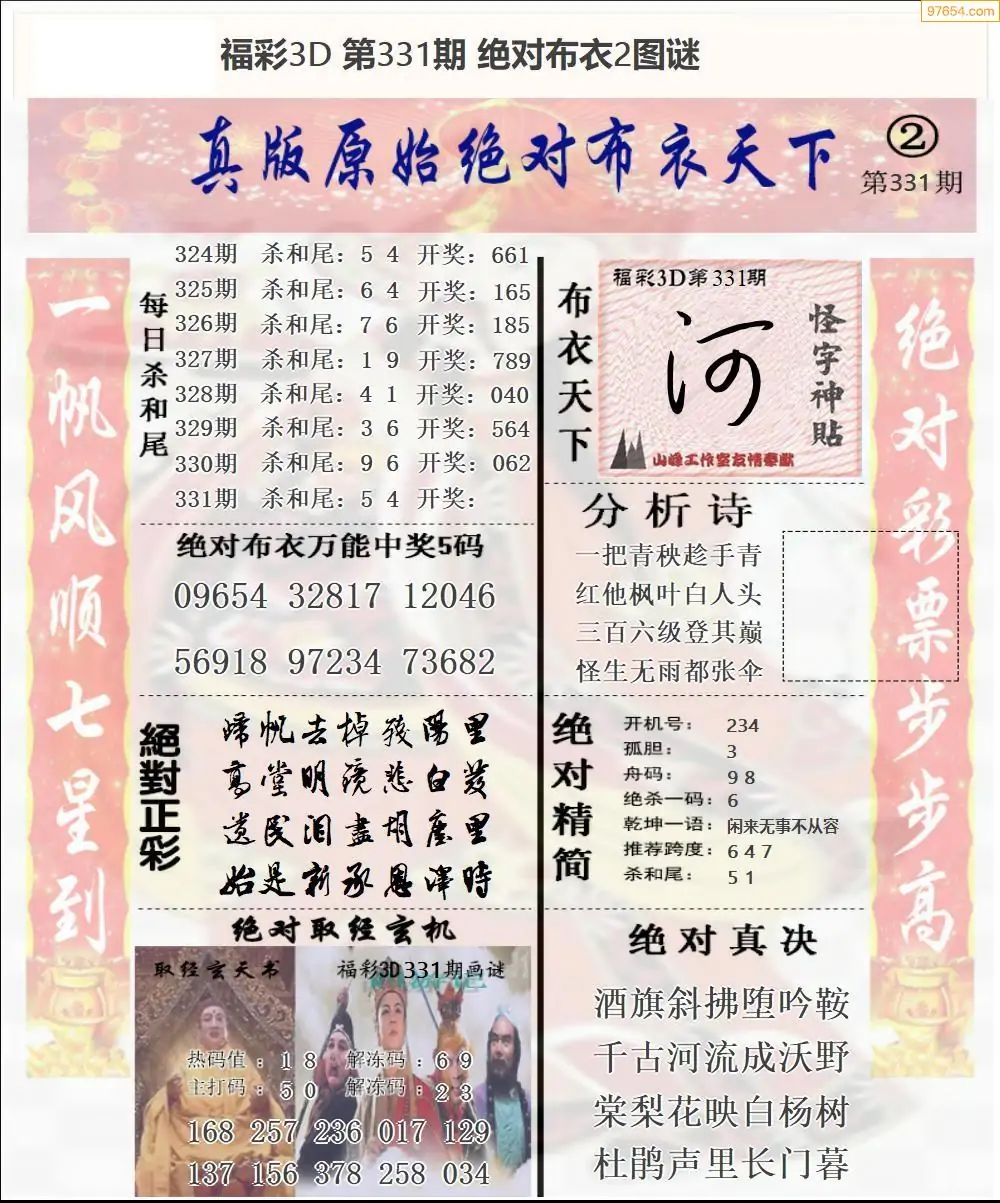 97654.com
福彩3D 第331期 绝对布衣2图谜
真版原始绝对布衣天下
②
第331期
一帆风顺七星到
每日杀和尾
324期 杀和尾：5 4 开奖：661
325期 杀和尾：6 4 开奖：165
326期 杀和尾：7 6 开奖：185
327期 杀和尾：1 9 开奖：789
328期 杀和尾：4 1 开奖：040
329期 杀和尾：3 6 开奖：564
330期 杀和尾：9 6 开奖：062
331期 杀和尾：5 4 开奖：
绝对布衣万能中奖5码
09654 32817 12046
56918 97234 73682
絕對正彩
高堂明镜悲白发
遗民泪盡胡塵里
始是新承恩泽時
绝对取经玄机
取经玄天书
福彩3D331期画谜
热码值：1 8 解冻码：6 9
主打码：5 0 解冻码：2 3
168 257 236 017 129
137 156 378 258 034
布衣天下
福彩3D第331期
河
怪字神贴
山峰工作室友情奉献
分析诗
一把青秧趁手青
红他枫叶白人头
三百六级登其巅
怪生无雨都张伞
绝对精简
开机号：234
孤胆：3
舟码：9 8
绝杀一码：6
乾坤一语：闲来无事不从容
推荐跨度：6 4 7
杀和尾：5 1
绝对真决
酒旗斜拂堕吟鞍
千古河流成沃野
棠梨花映白杨树
杜鹃声里长门暮
绝对彩票步步高